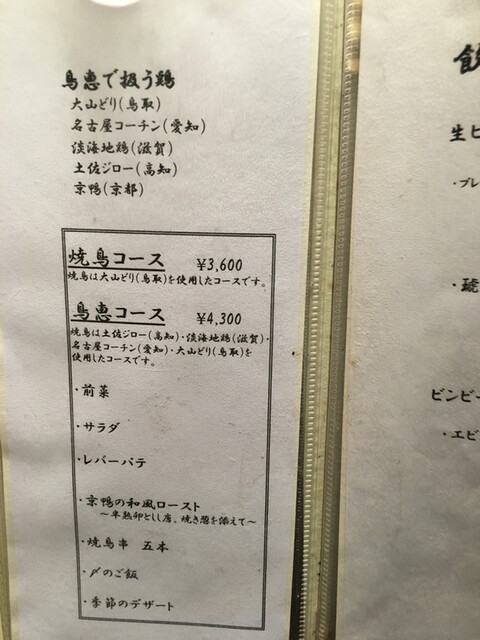 鳥恵で扱う鶏
大山どり(鳥取)
名古屋コーチン(愛知)
淡海地鶏(滋賀)
土佐ジロー(高知)
京鴨(京都)
焼鳥コース ¥3,600
焼鳥は大山どり(鳥取)を使用したコースです。
鳥恵コース ¥4,300
焼鳥は土佐ジロー(高知)・淡海地鶏(滋賀)・
名古屋コーチン(愛知)・大山どり(鳥取)を
使用したコースです。
・前菜
・サラダ
・レバーパテ
・京鴨の和風ロースト
～半熟卵としし唐、焼き葱を添えて～
・焼鳥串 五本
・〆のご飯
・季節のデザート
飲
生ビ
・プレ
・琥
ビンビー
・エビ